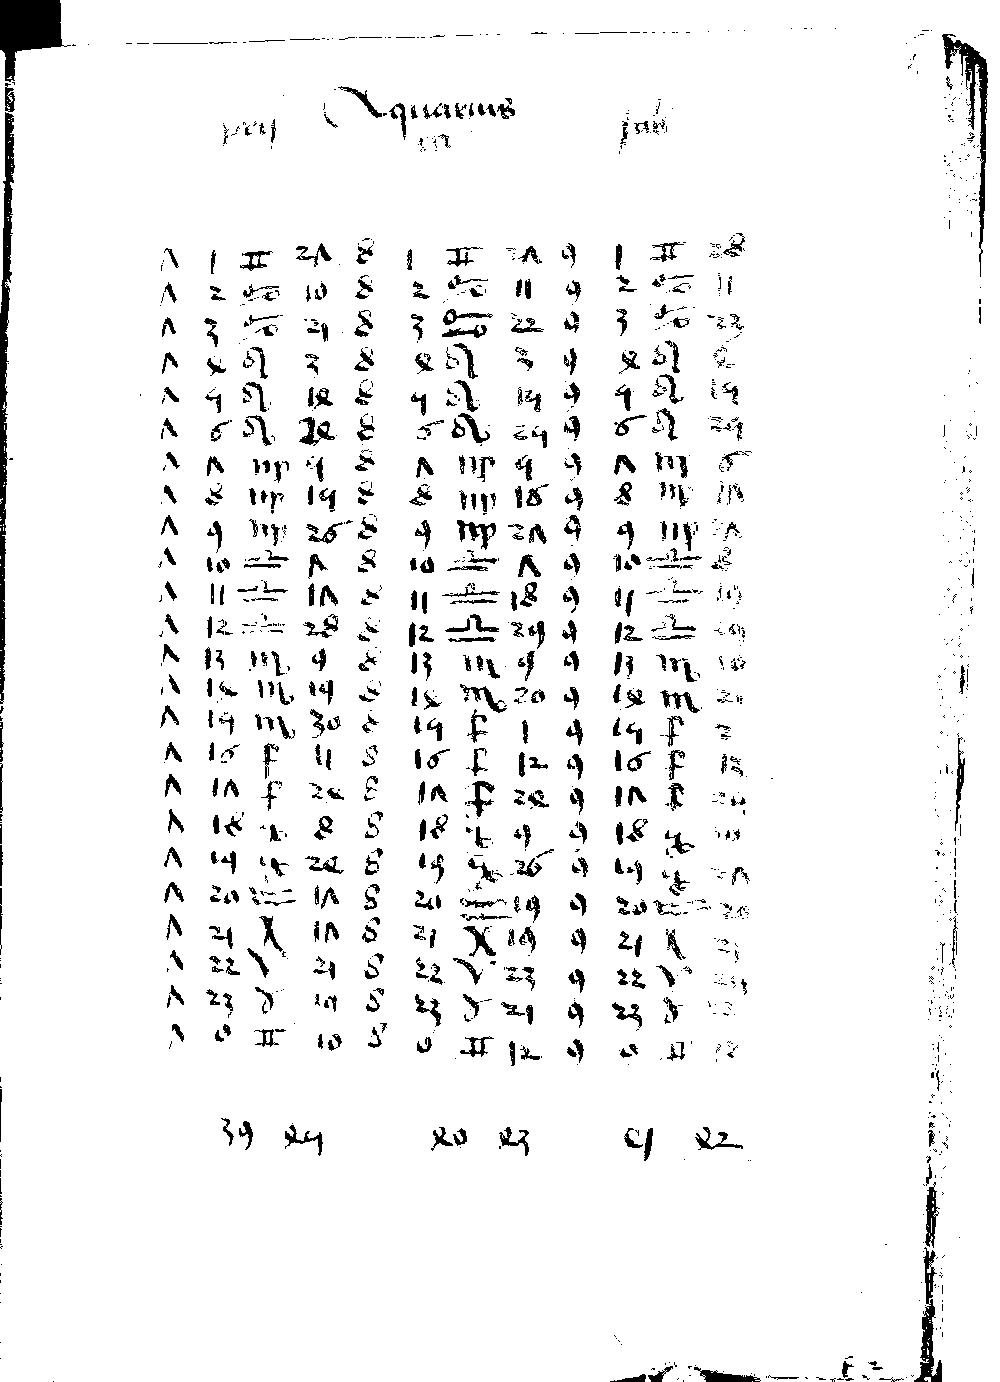 Aquarius
7 1 ♊ 27 8 1 ♊ 27 9 1 ♊ 28
7 2 ♋ 10 8 2 ♋ 11 9 2 ♋ 11
7 3 ♋ 21 8 3 ♋ 22 9 3 ♋ 23
7 4 ♌ 3 8 4 ♌ 3 9 4 ♌ 4
7 5 ♌ 14 8 5 ♌ 15 9 5 ♌ 15
7 6 ♌ 24 8 6 ♌ 25 9 6 ♌ 25
7 7 ♍ 5 8 7 ♍ 5 9 7 ♍ 6
7 8 ♍ 15 8 8 ♍ 16 9 8 ♍ 17
7 9 ♍ 26 8 9 ♍ 27 9 9 ♍ 27
7 10 ♎ 7 8 10 ♎ 7 9 10 ♎ 8
7 11 ♎ 17 8 11 ♎ 18 9 11 ♎ 19
7 12 ♎ 28 8 12 ♎ 29 9 12 ♎ 29
7 13 ♏ 9 8 13 ♏ 9 9 13 ♏ 10
7 14 ♏ 19 8 14 ♏ 20 9 14 ♏ 21
7 15 ♏ 30 8 15 ♐ 1 9 15 ♐ 2
7 16 ♐ 11 8 16 ♐ 12 9 16 ♐ 13
7 17 ♐ 24 8 17 ♐ 24 9 17 ♐
7 18 ♑ 8 8 18 ♑ 9 9 18 ♑ 10
7 19 ♑ 24 8 19 ♑ 26 9 19 ♑ 27
7 20 ♒ 17 8 20 ♒ 19 9 20 ♒ 20
7 21 ♓ 17 8 21 ♓ 19 9 21 ♓ 21
7 22 ♈ 21 8 22 ♈ 23 9 22 ♈
7 23 ♉ 19 8 23 ♉ 21 9 23 ♉
7 0 ♊ 10 8 0 ♊ 12 9 0 ♊ 12
39 45 40 43 41 42